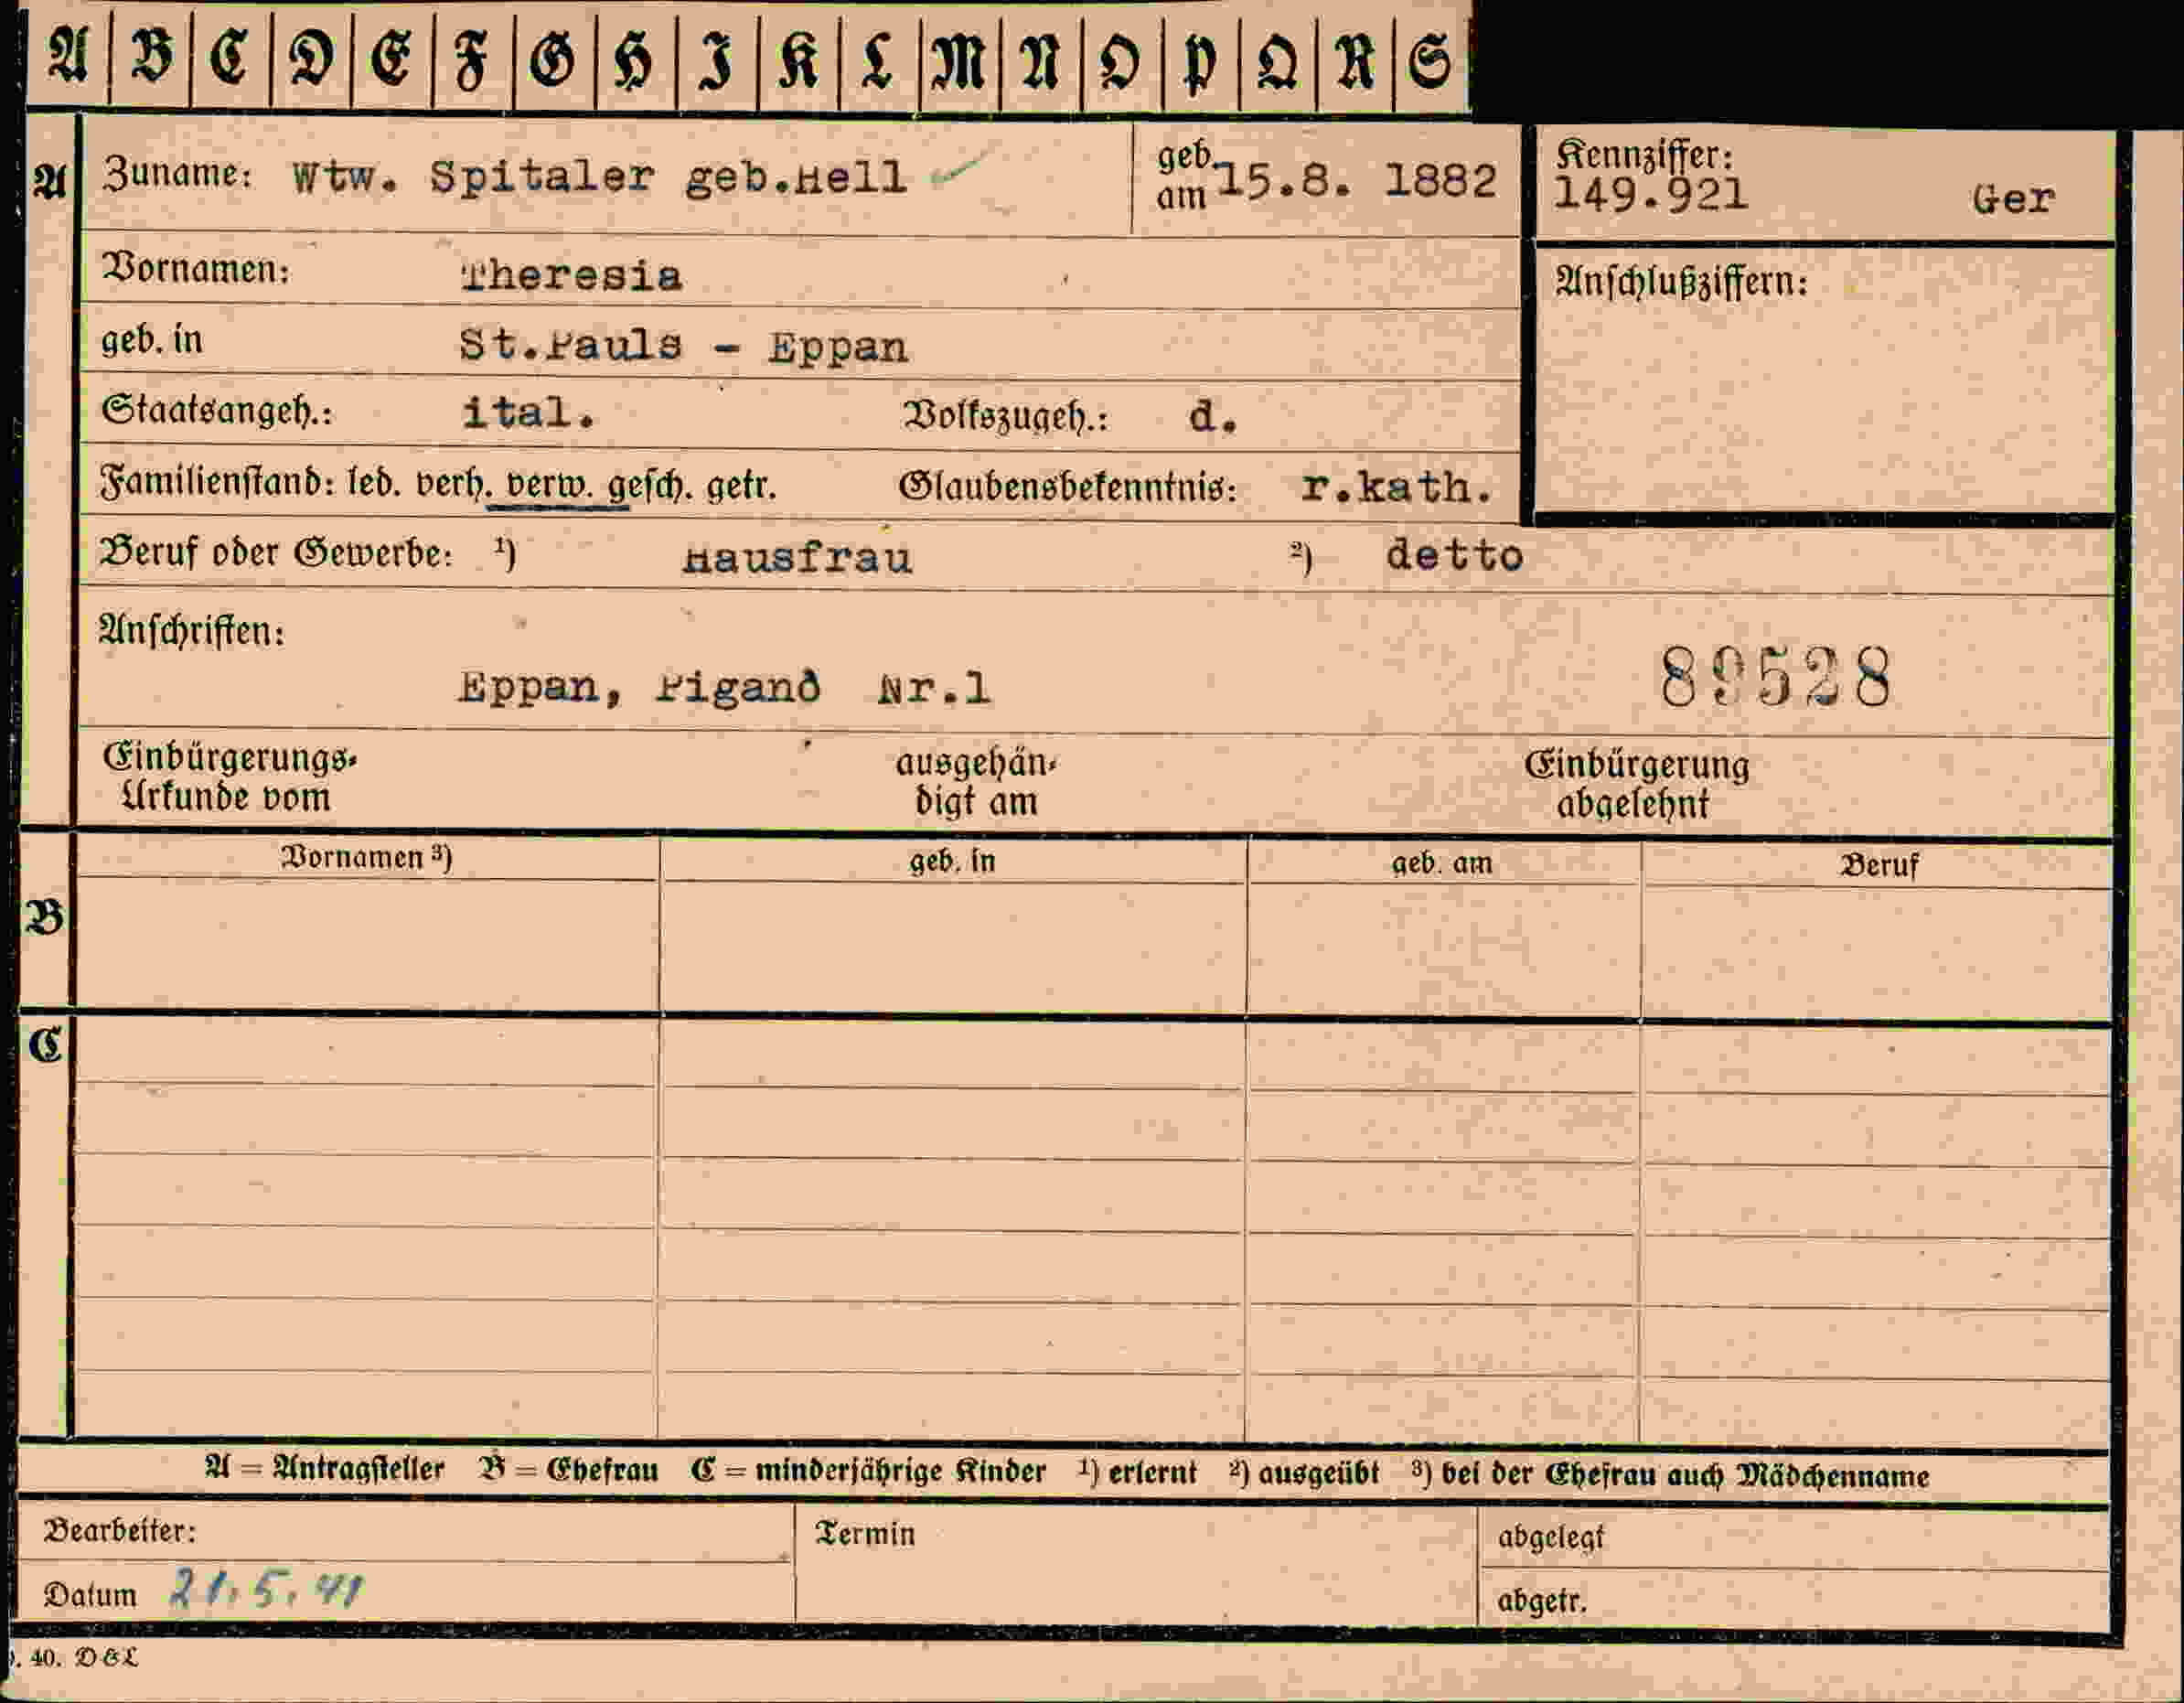 A B C D E F G H I K L M N O P Q R S
A Zuname: Wtw. Spitaler geb.Hell geb. am 15.8. 1882 Kennziffer: 149.921 Ger
Vornamen: Theresia Anschlußziffern:
geb. in St.Pauls - Eppan
Staatsangeh.: ital. Volkszugeh.: d.
Familienstand: led. verh. verw. gesch. getr. Glaubensbekenntnis: r.kath.
Beruf oder Gewerbe: ¹) Hausfrau ²) detto
Anschriften:
89528
Eppan, Pigand Nr.1
Einbürgerungs- ausgehän- Einbürgerung
Urkunde vom digt am abgelehnt
Vornamen ³) geb. in geb. am Beruf
B
C
A = Antragsteller B = Ehefrau C = minderjährige Kinder ¹) erlernt ²) ausgeübt ³) bei der Ehefrau auch Mädchenname
Bearbeiter: Termin abgelegt
Datum 21.5.41 abgetr.
. 40. D&L